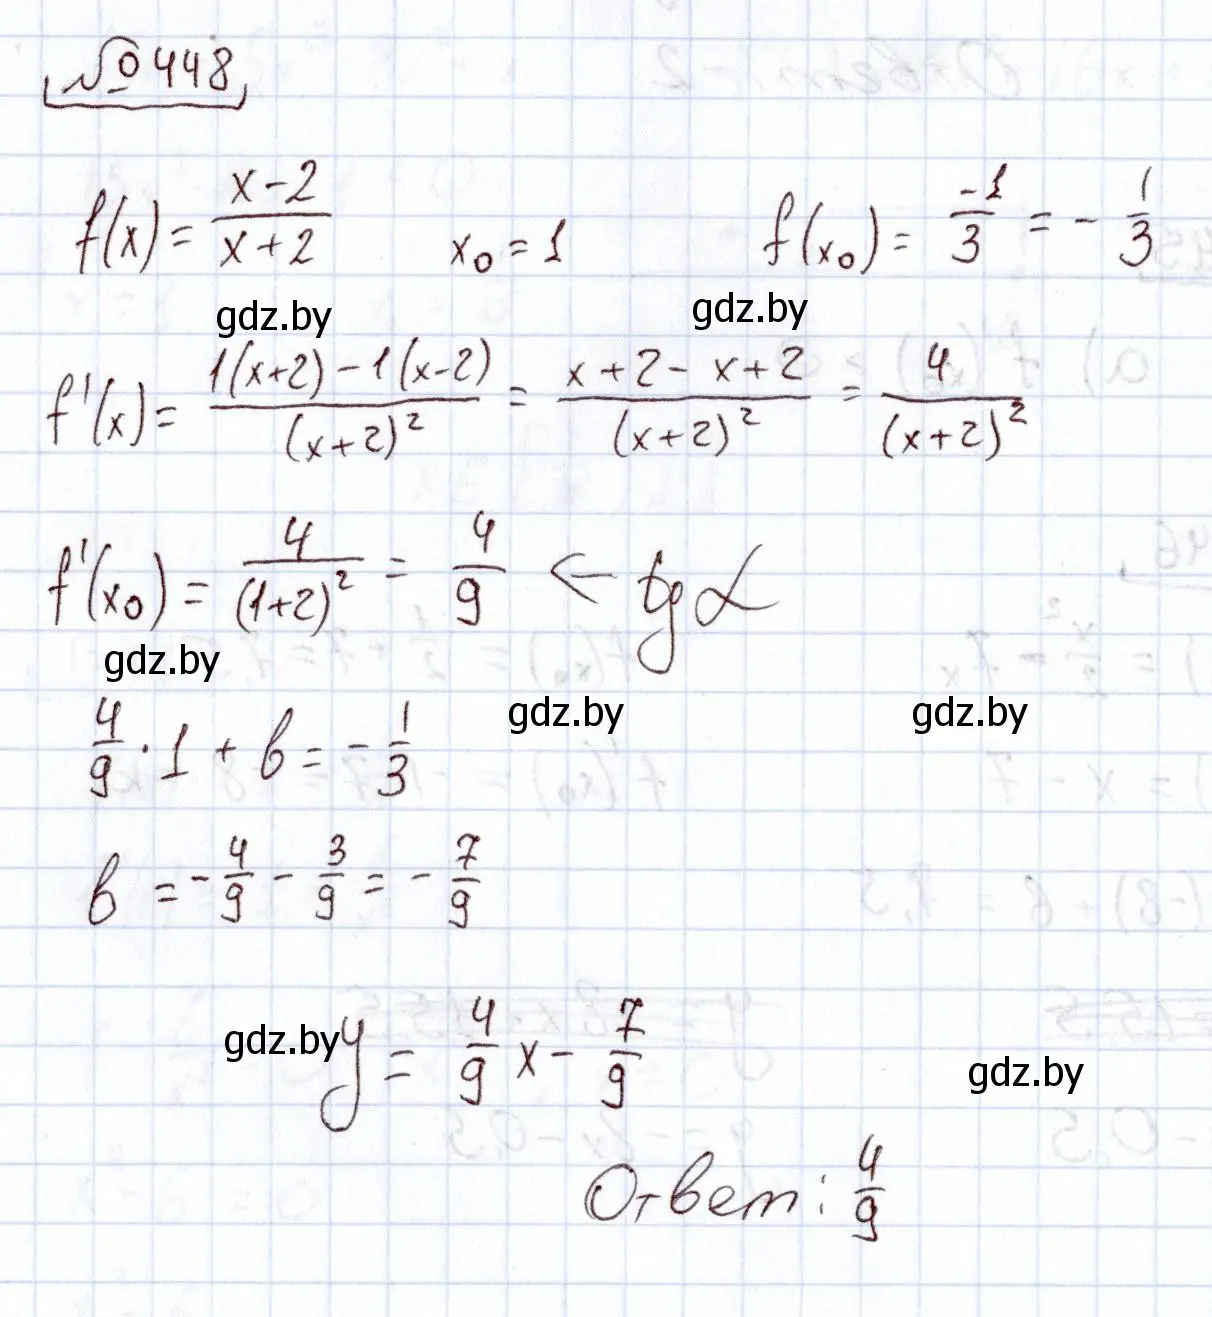 № 448
f(x) = (x-2)/(x+2)   x₀ = 1   f(x₀) = -1/3 = - 1/3
gdz.by gdz.by
f'(x) = (1(x+2) - 1(x-2))/(x+2)² = (x+2- x+2)/(x+2)² = 4/(x+2)²
f'(x₀) = 4/(1+2)² = 4/9 ← tg α
gdz.by
gdz.by gdz.by
4/9 · 1 + b = - 1/3
b = - 4/9 - 3/9 = - 7/9
gdz.by y = 4/9 x - 7/9
gdz.by
Ответ: 4/9